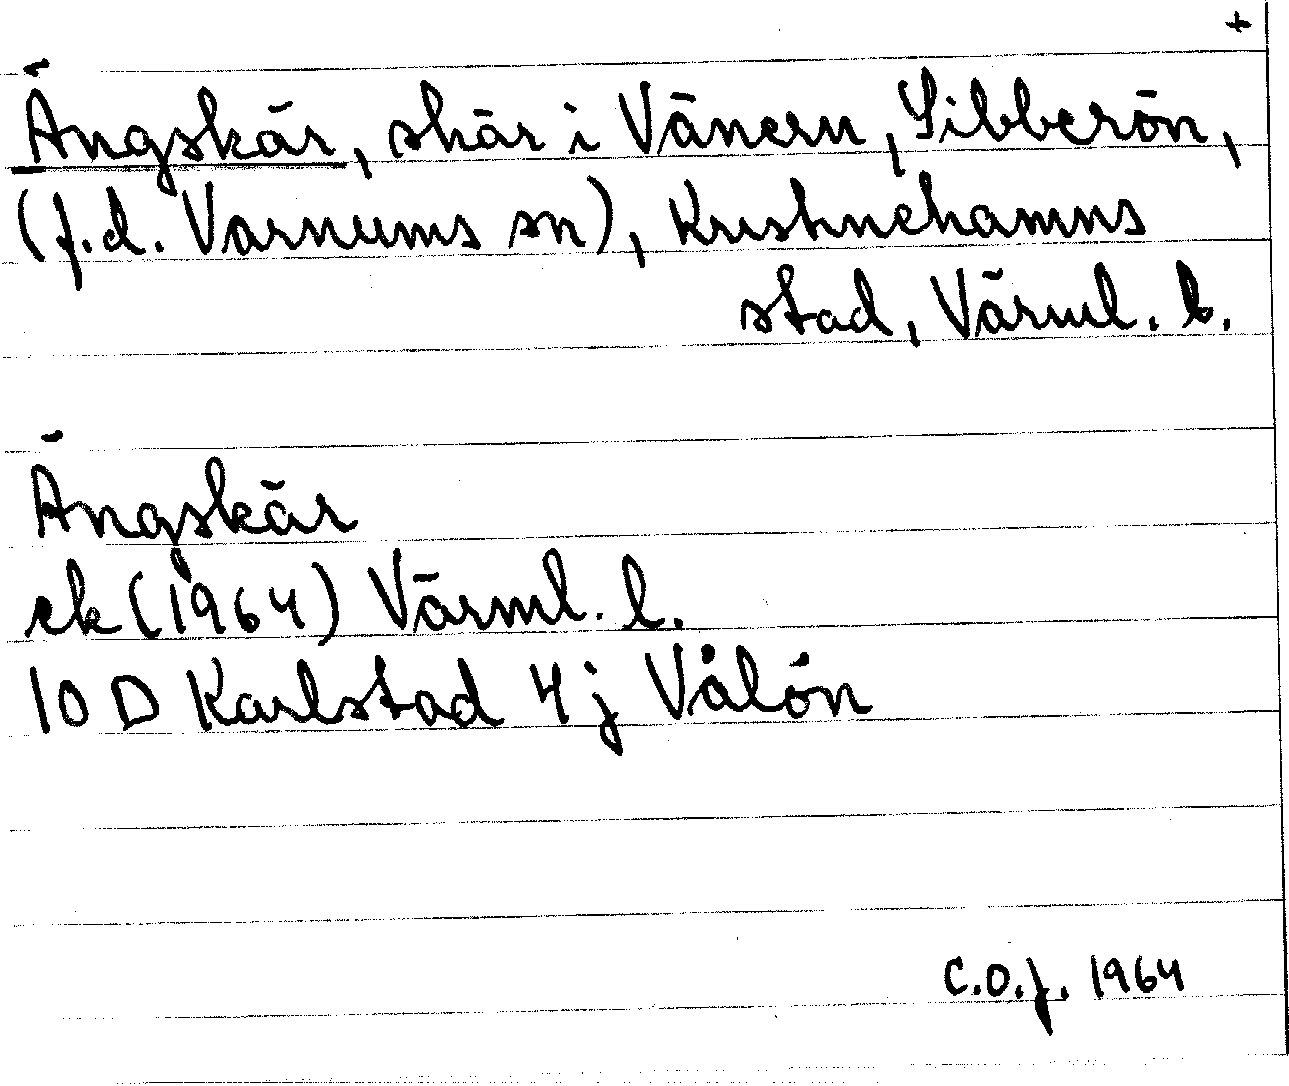 +
Ängskär, skär i Vänern, Sibberön,
(f.d. Varnums sn), Kristinehamns
stad, Värml. l.
Ängskär
ek (1964) Värml. l.
10 D Karlstad 4 j Vålön
C.O.J. 1964